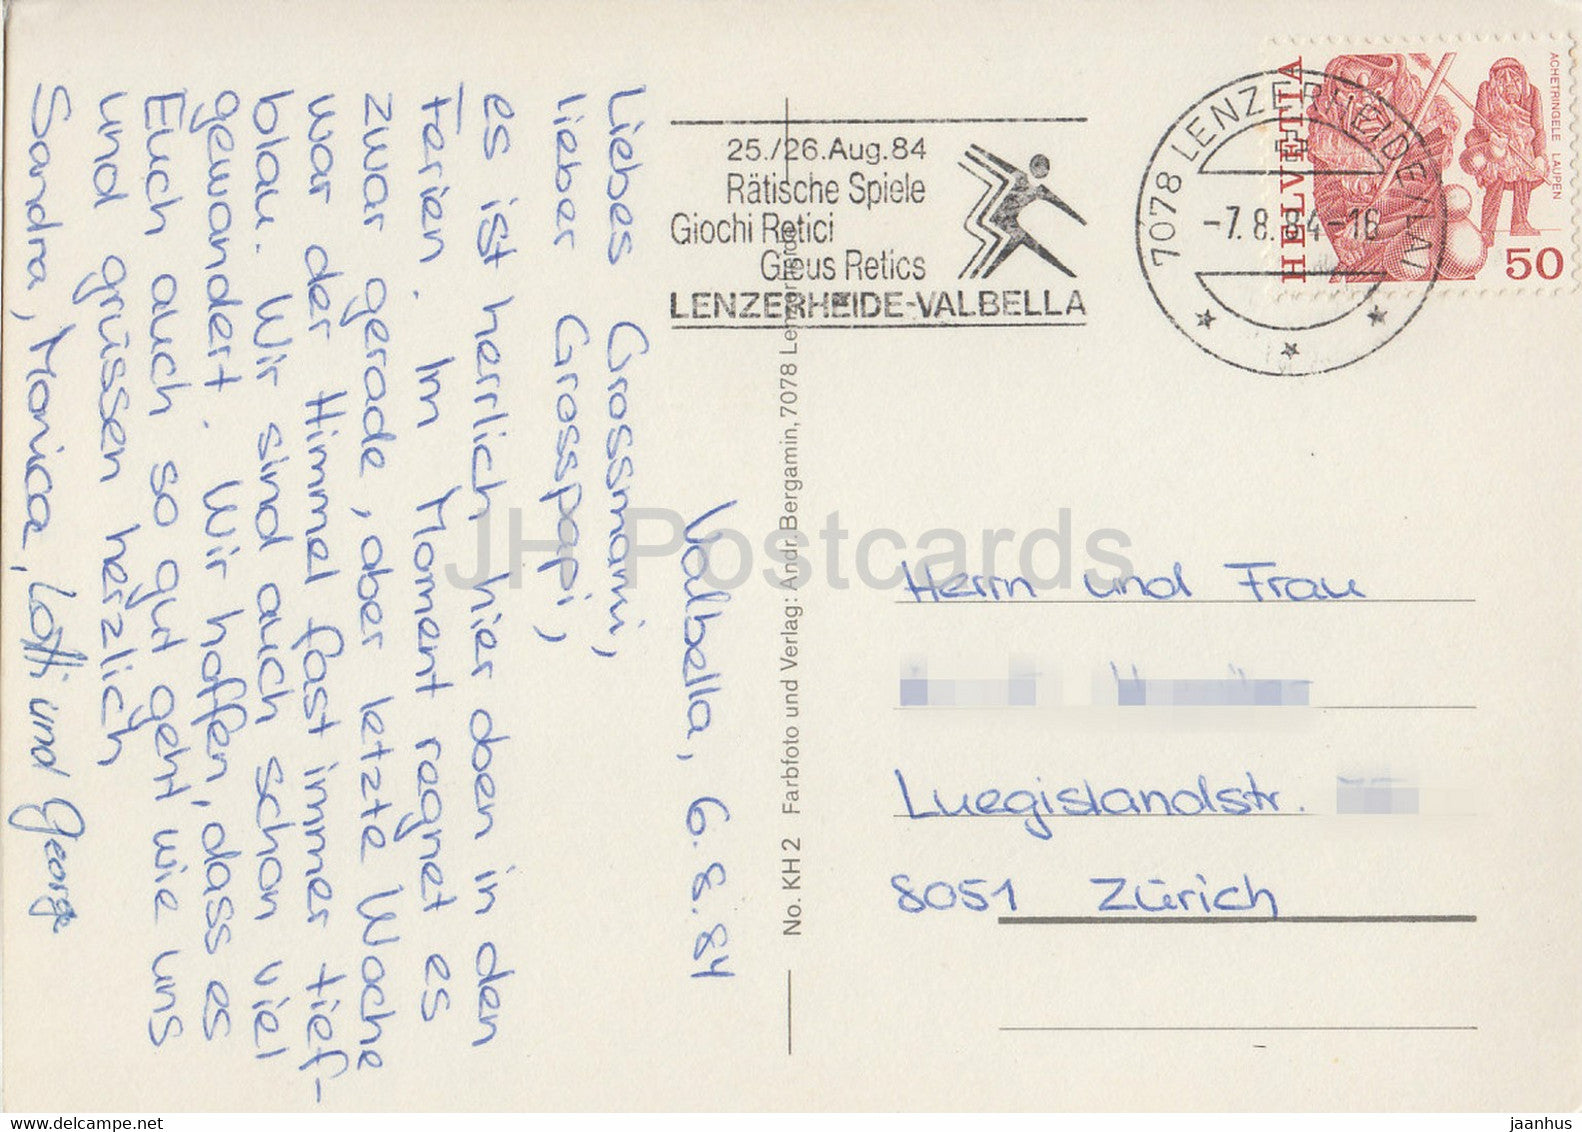 Valbella, 6.8.84
Liebes Grossmami,
lieber Grosspapi,
es ist herrlich hier oben in den
Ferien. Im Moment regnet es
zwar gerade, aber letzte Woche
war der Himmel fast immer tief-
blau. Wir sind auch schon viel
gewandert. Wir hoffen, dass es
Euch auch so gut geht wie uns
und grüssen herzlich
Sandra, Monica, Lotti und George
No. KH 2 Farbfoto und Verlag: Andr. Bergamin, 7078 Lenzerheide
25./26. Aug. 84
Rätische Spiele
Giochi Retici
Gieus Retics
LENZERHEIDE-VALBELLA
7078 LENZERHEIDE/LAI
-7.8.84-18
HELVETIA
ACHETRINGELE LAUPEN
50
Herrn und Frau
Luegislandstr.
8051 Zürich
JH Postcards
www.delcampe.net
jaanhus